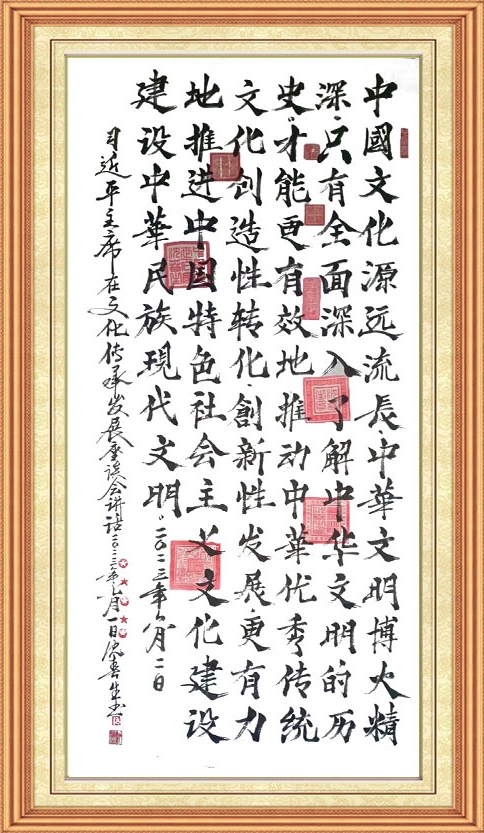 中國文化源远流長、中華文明博大精
深、只有全面深入了解中华文明的历
史、才能更有效地推动中華优秀传统
文化创造性转化、創新性发展、更有力
地推进中国特色社会主义文化建设
建设中華民族現代文明。二〇二三年六月二日
习近平主席在文化传承发展座谈会讲话二〇二三年七月一日